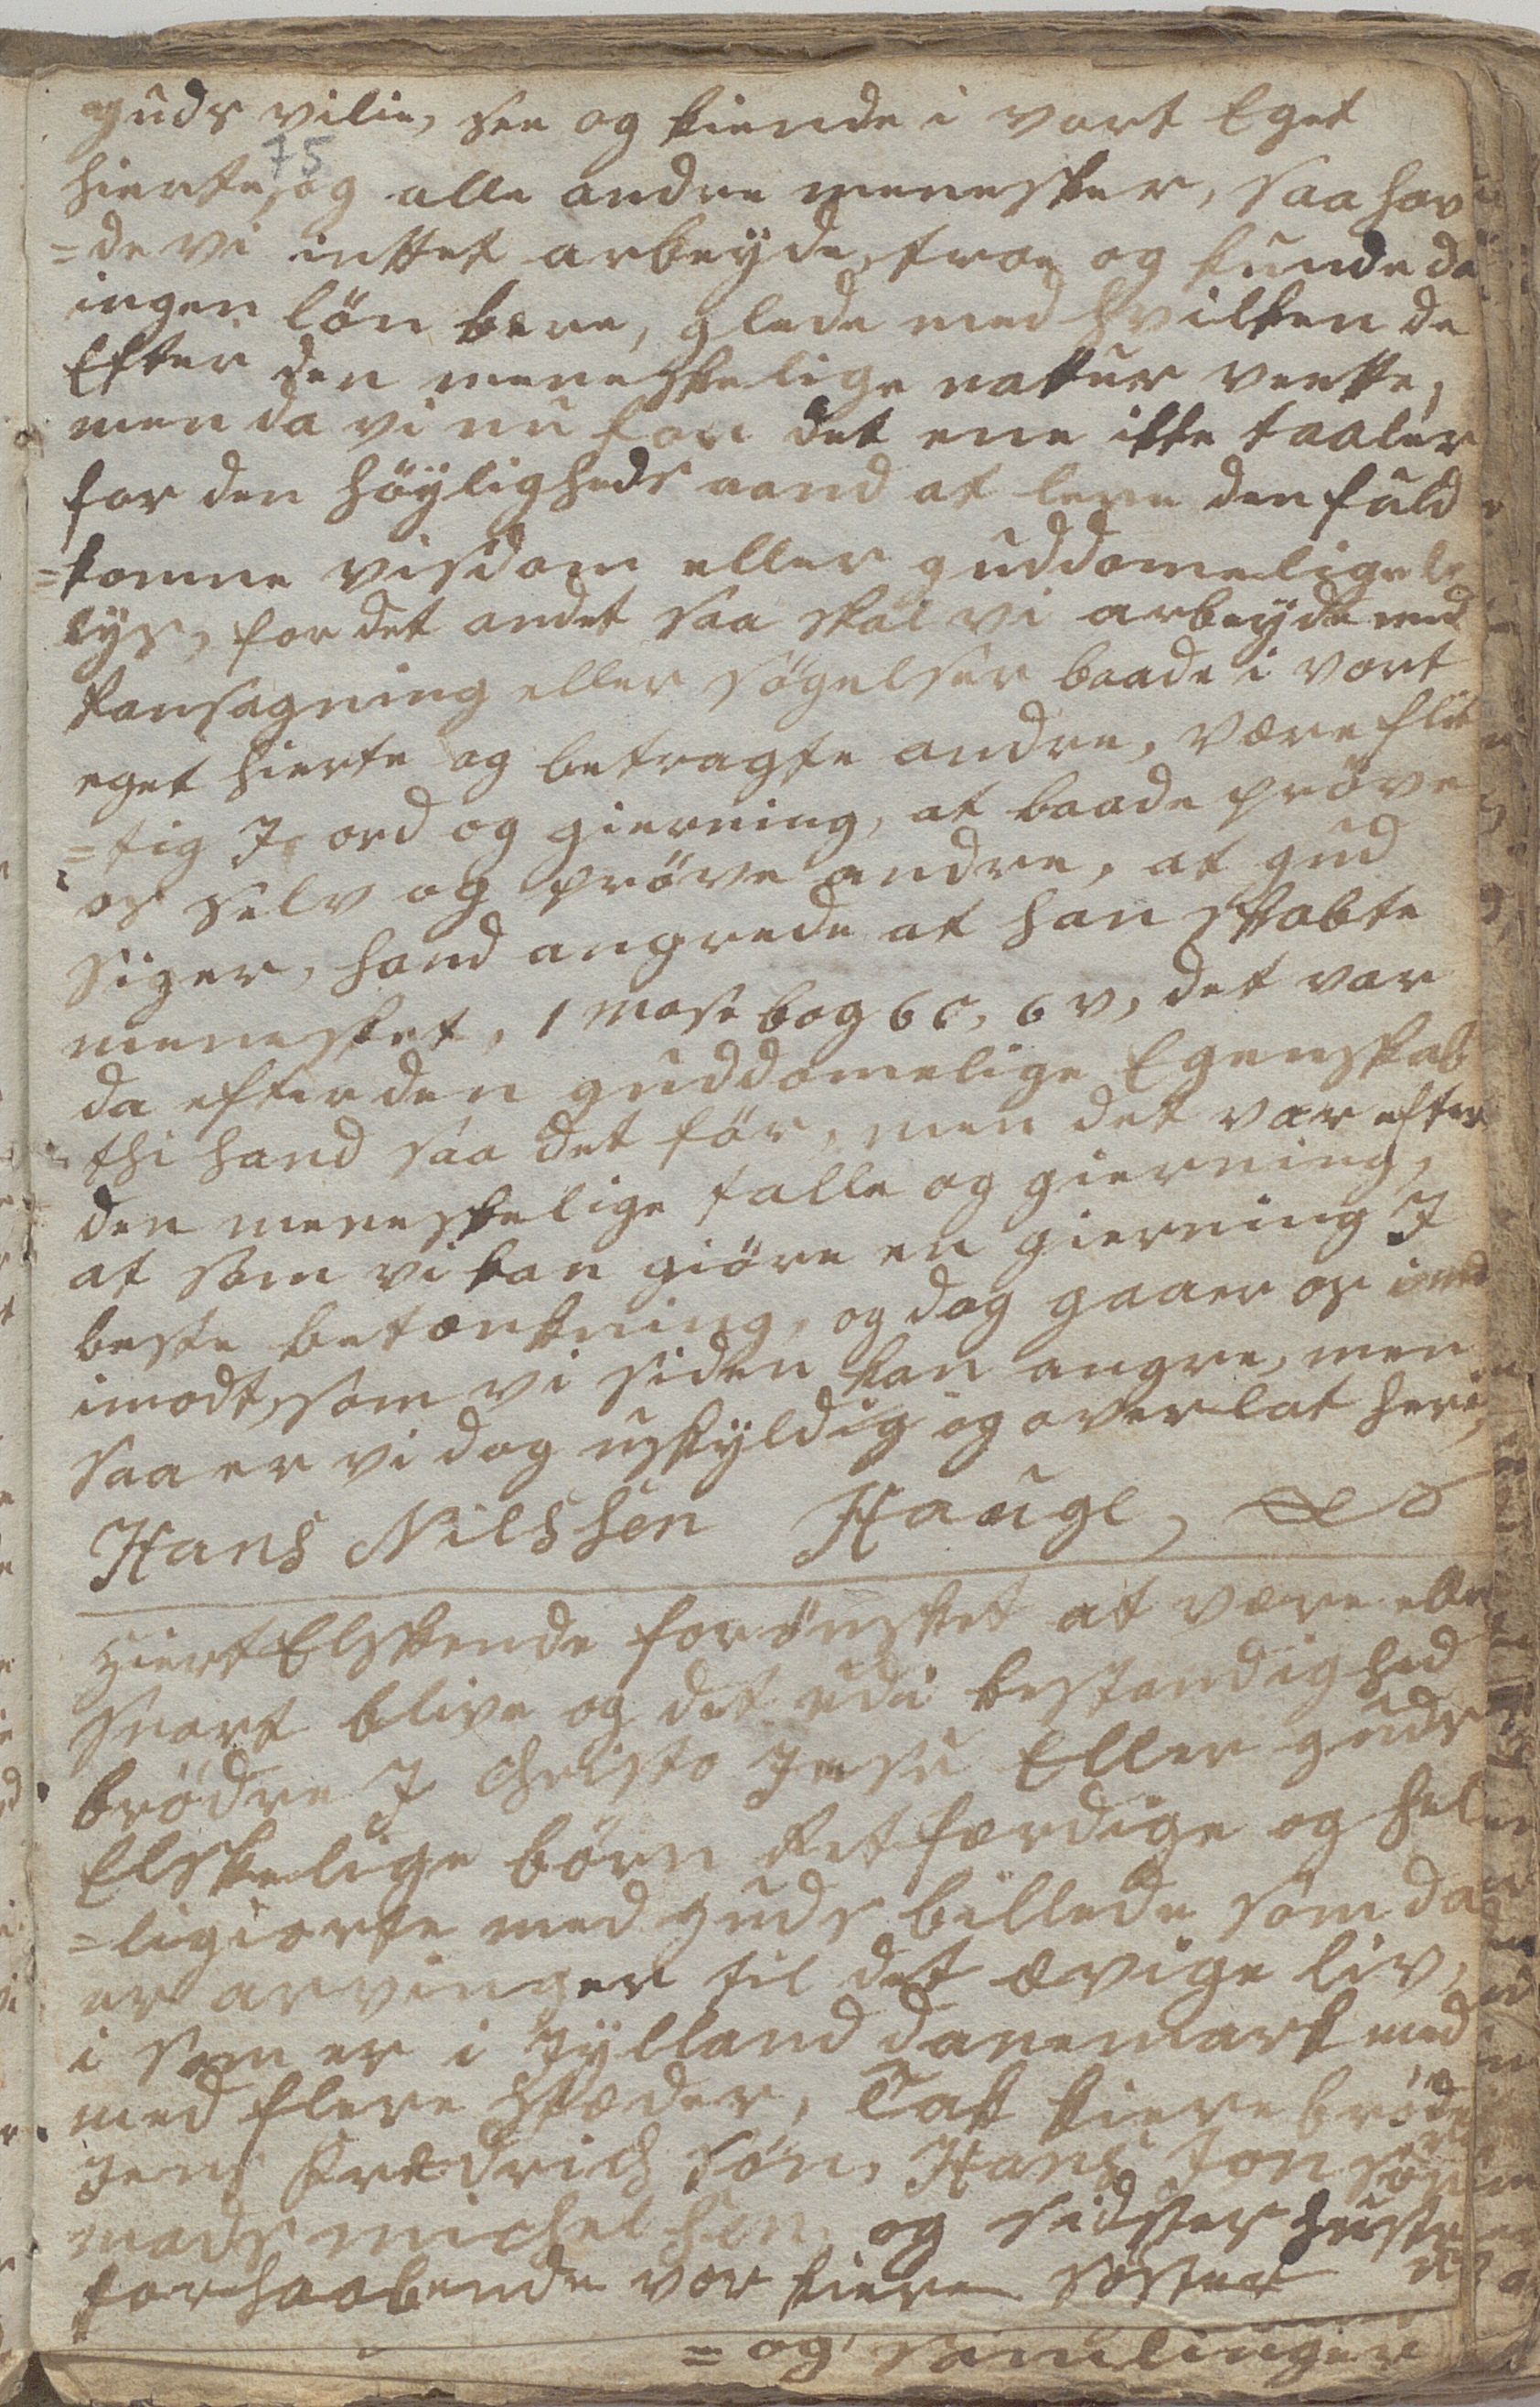 guds vilie, see og kiende i vort Eget
75
hierte, og alle andre menesker, saa hav
=de vi inttet arbeyde, troe og kunde da
ingen lön bære, glede med hvilken de
Efter den meneskelige nattur veette,
men da vi nu for det ene ikke taaler
for den höyligheds aand at lere den fuld
=komne visdom eller guddomelige
lys, for det andet saa skal vi arbeyde med
Ransagning eller sögelser baade i vort
eget hierte og betragte andre, være flit
=tig I ord og gierning, at baade pröve
os selv og pröve andre, at gud
siger, hand angrede at han skabte
mennesket, 1 Mose bog 6 c, 6 v, det var
da efter den guddomelige Egenskab
thi hand saa det för, men det var efter
den meneskelige talle og gierning,
at som vi kan giöre en gierning I
beste betænkning, og dog gaaer os
imodt, som vi siden kan angre, men
saa er vi dog uskyldig og overlat heri,
Hans Nilssen Hauge,
HiertElskende forönsket at være eller
snart blive og det udi bestandighed
brödre I Christo Jesu Eller guds
Elskelige börn Retfærdige og hel
=ligiorte med guds billede som da
er arvinger til det ævige liv,
i som er i Jylland danemark med
med flere stæder, Tak kiere bröder
Jens Fredrich sön, Hans Jon sön
mads michel sön og sidster hustru
forhaabende vor kiere söster
= og samlinger